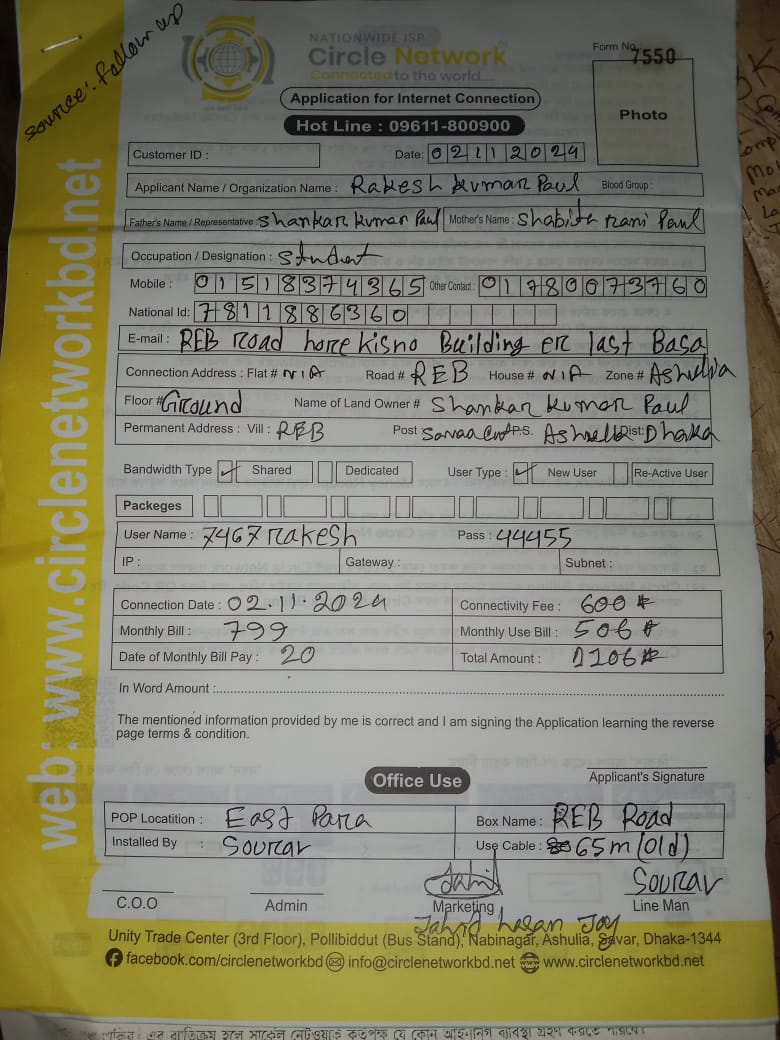 source: follow up
NATIONWIDE ISP
Circle Network
Connected to the world....
Form No. 7550
Photo
Application for Internet Connection
Hot Line : 09611-800900
Customer ID :
Date: 02112024
Applicant Name / Organization Name : Rakesh kumar Paul Blood Group :
Father's Name / Representative : Shankar kumar Paul Mother's Name : Shabith rani Paul
Occupation / Designation : Student
Mobile : 01518374365 Other Contact : 01780073760
National Id: 7811886360
E-mail : REB road hore kisno Building er last Basa
Connection Address : Flat # N/A Road # REB House # N/A Zone # Ashulia
Floor # Ground Name of Land Owner # Shankar kumar Paul
Permanent Address : Vill : REB Post P.S. Dist: Dhaka
Bandwidth Type ✓ Shared Dedicated User Type : ✓ New User Re-Active User
Packeges
User Name : 7467rakesh Pass : 44455
IP : Gateway : Subnet :
Connection Date : 02.11.2024 Connectivity Fee : 600
Monthly Bill : 799 Monthly Use Bill : 506
Date of Monthly Bill Pay : 20 Total Amount : 1106
In Word Amount :
The mentioned information provided by me is correct and I am signing the Application learning the reverse
page terms & condition.
Applicant's Signature
Office Use
POP Locatition : East Para Box Name : REB Road
Installed By : Sourav Use Cable : 65m (old)
Jahid Sourav
C.O.O Admin Marketing Line Man
Jahid hasan Joy
Unity Trade Center (3rd Floor), Pollibiddut (Bus Stand), Nabinagar, Ashulia, Savar, Dhaka-1344
facebook.com/circlenetworkbd info@circlenetworkbd.net www.circlenetworkbd.net
web: www.circlenetworkbd.net